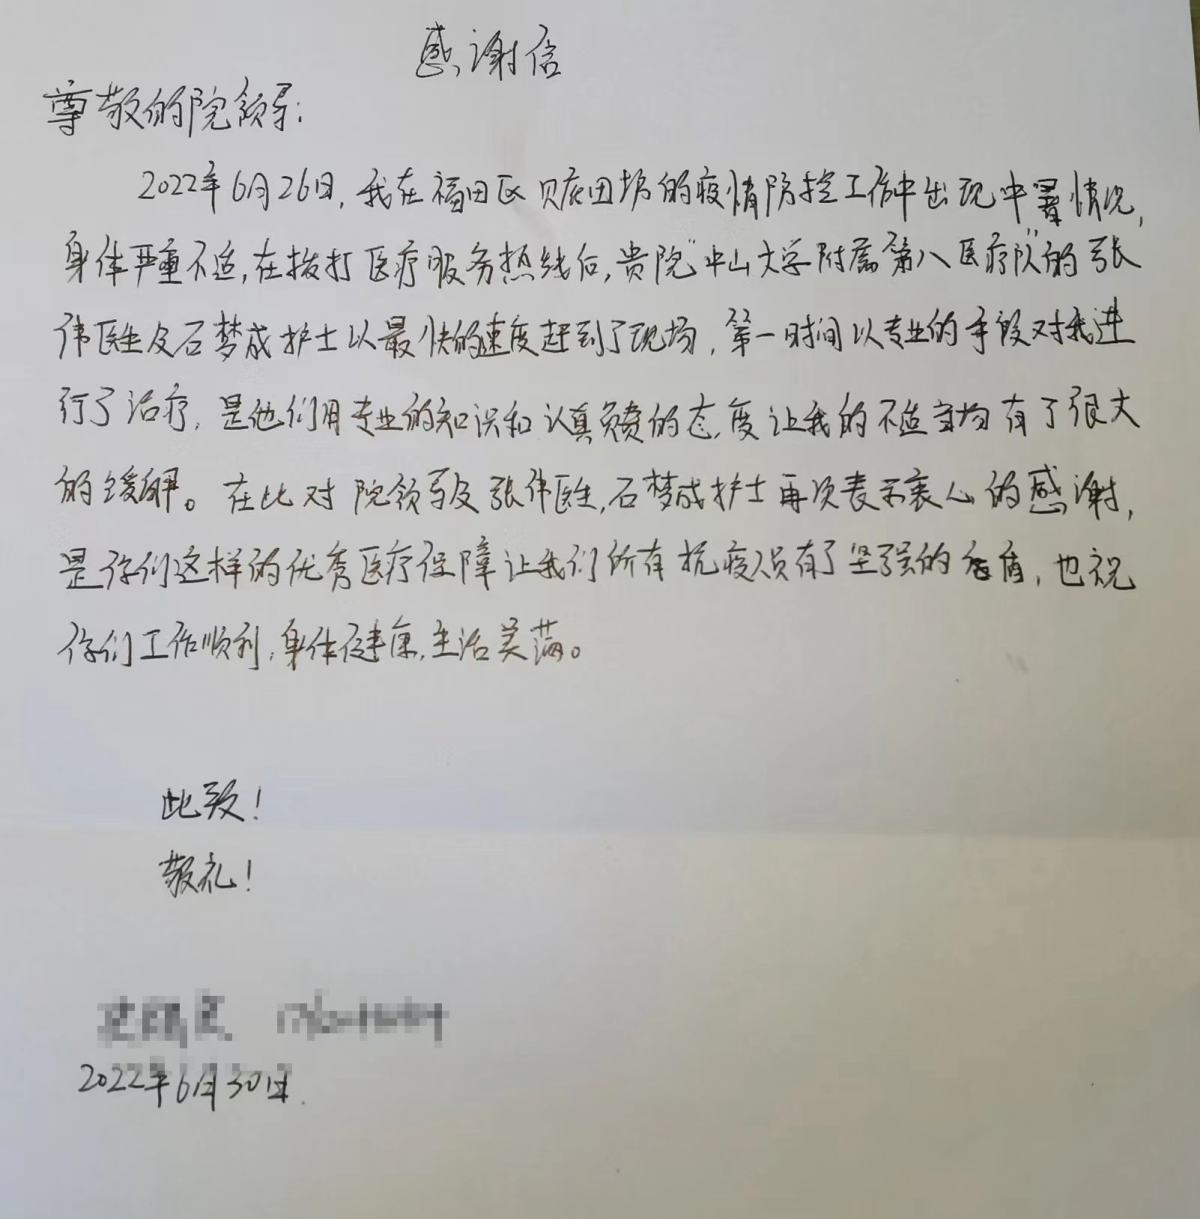 感谢信
尊敬的院领导：
2022年6月26日，我在福田区贝底田坊的疫情防控工作中出现中暑情况，
身体严重不适，在拨打医疗服务热线后，贵院"中山大学附属第八医疗队"的张
伟医生及石梦成护士以最快的速度赶到了现场，第一时间以专业的手段对我进
行了治疗，是他们用专业的知识和认真负责的态度让我的不适症均有了很大
的缓解。在此对院领导及张伟医生，石梦成护士再次表示衷心的感谢，
是你们这样的优秀医疗保障让我们所有抗疫人员有了坚强的后盾，也祝
你们工作顺利，身体健康，生活美满。
此致！
敬礼！
2022年6月30日.